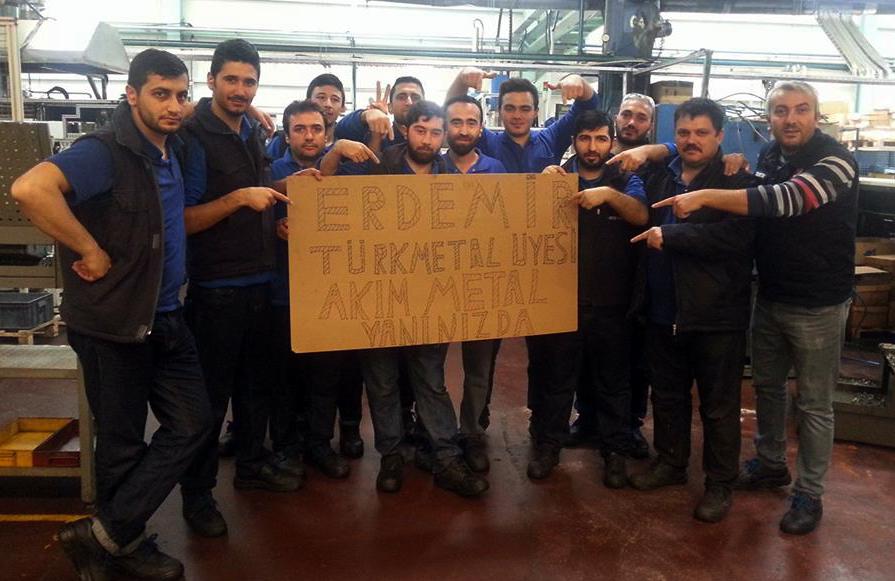 ERDEMİR
TÜRKMETAL ÜYESİ
AKIM METAL
YANINIZDA